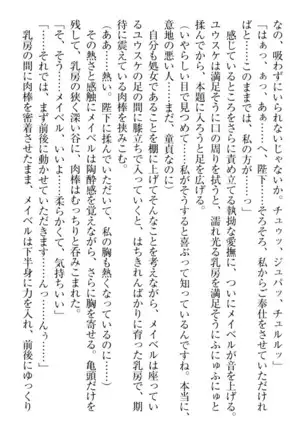 なの、吸わずにいられないじゃない。チュゥッ、ジュパッ、チュルルッ」
「はぁっ、ぁっ、あぁっ……へ、陛下……そろそろ、私からご奉仕をさせていただければと……このままでは、私の方が……っ」
感じているところをさらに責め立てる執拗な愛撫に、ついにメイベルが音を上げる。
ユウスケは満足そうに口の周りを拭うと、濡れ光る乳房を満足そうにふにゅふにゅと
揉んでから、本題に入ろうと足を広げる。
（いやらしい目で見つめて……私がそうすると喜ぶって知っているんですね。本当に、
意地の悪い人……まだ、童貞なのに）
自分も処女であることを棚に上げてそんなことを考えながら、メイベルは座っている
ユウスケの足の間に膝立ちで入っていくと、はちきれんばかりに育った乳房で、期
待に震えている肉棒を挟みこむ。
（ああ……熱い。陛下に揉んでいただいて、私の胸も熱くなっているのに……）
その熱さと感触にメイベルは陶酔感を覚えながら、さらに胸を寄せる。亀頭だけを
残して、乳房の狭く深い谷に、肉棒はむっちりと呑みこまれた。
「そう……そうよ、メイベル、いいよ……柔らかくて、気持ちいい」
「……それでは、まず前後に動かせていただきます……んっ……んぅっ……」
乳房の間に肉棒を密着させたまま、メイベルは下半身に力を入れ、前後にゆっくり